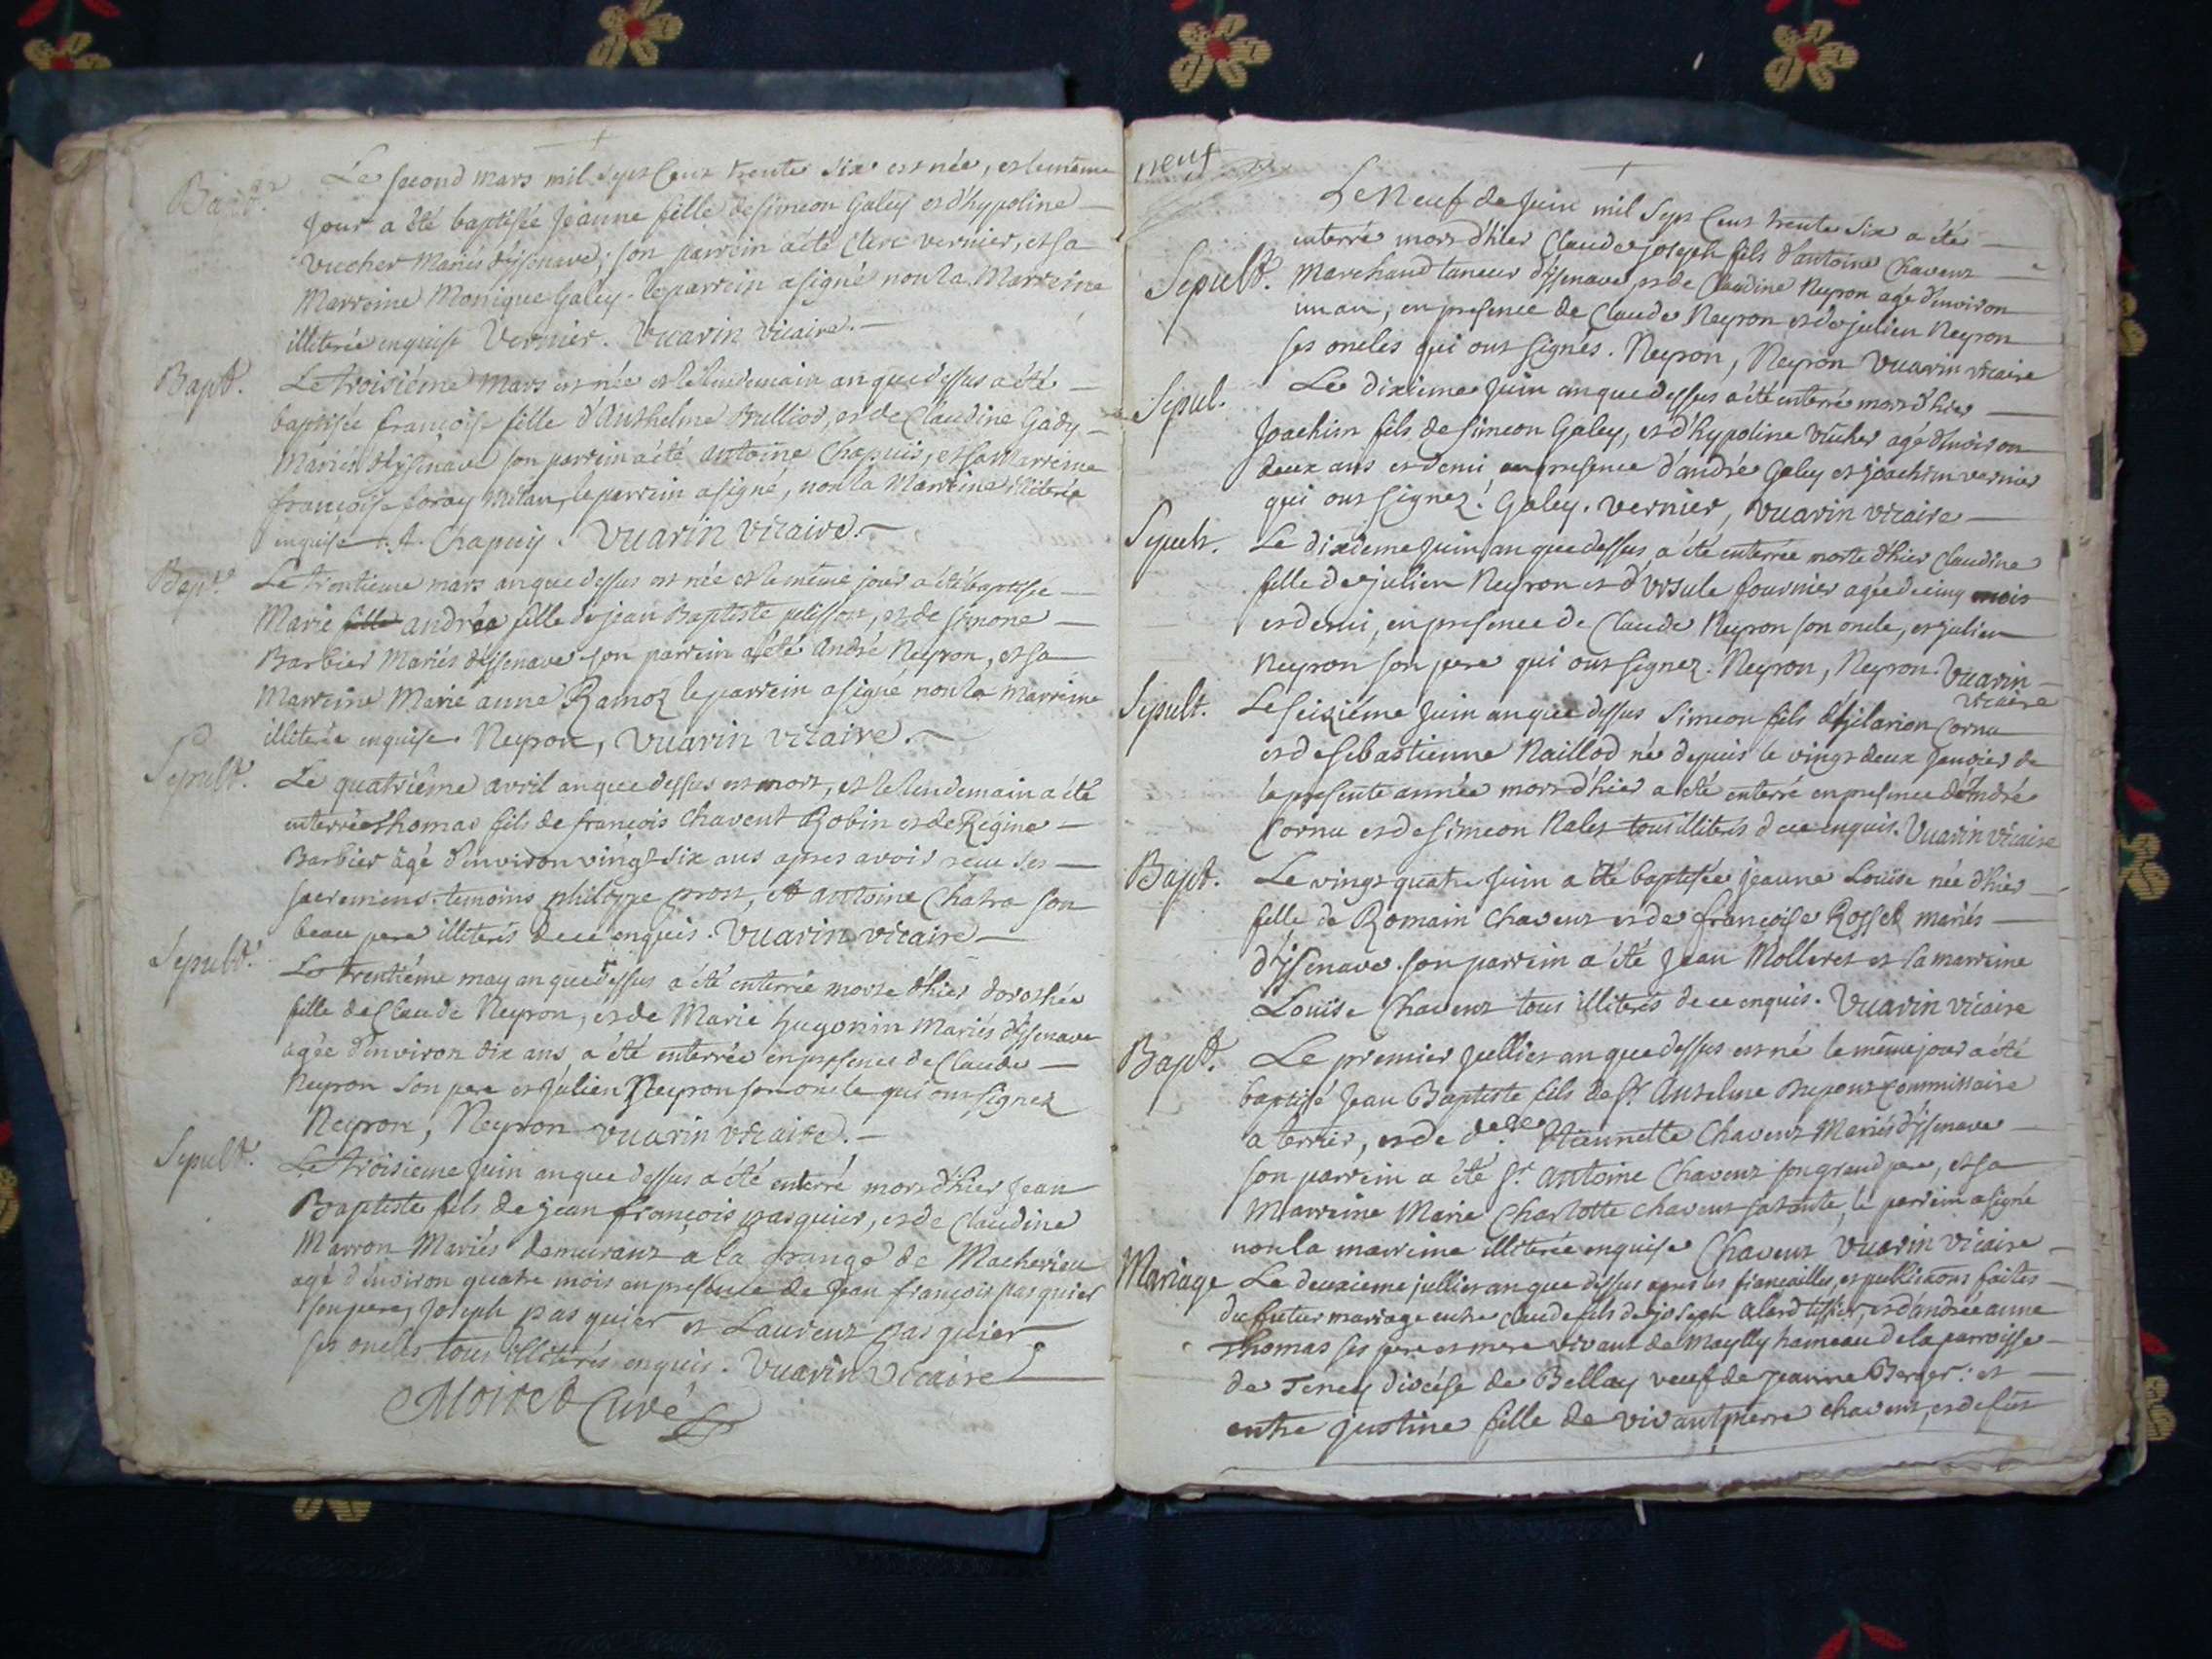 Bapt.
Le second mars mil sept cent trente six est née, et le même
jour a été baptisée Jeanne fille de simeon Galey et d'hypoline
vucher Mariés d'issenave; son parrein a été Clerc vernier, et sa
Marreine Monique Galey. le parrein a signé non la Marreine
illiterée enquise Vernier. Vuarin vicaire.
Bapt. Le troisiéme Mars est née et le lendemain an que dessus a été
baptisée françoise fille d'Anthelme et de Claudine Gady
Mariés d'issenave son parrein a été antoine Chapuis, et sa Marreine
françoise le parrein a signé, non la Marreine illiterée
enquise A. Chapuy. Vuarin Vicaire.
Bapt. Le trentieme mars an que dessus est née et le même jour a été baptisée
Marie fille andréa fille de jean Baptiste pelisson, et de simone
Barbier Mariés d'issenave son parrein a été André Neyron, et sa
Marreine Marie anne Ramoz le parrein a signé non la Marreine
illiterée enquise. Neyron, Vuarin vicaire.
Sepult. Le quatriéme avril an que dessus est mort, et le lendemain a été
enterré Thomas fils de françois Chavent Robin et de Regine
Barbier âgé d'environ vingt six ans apres avoir receu ses
sacremens. temoins philippe prost, et antoine Chatra son
beau pere illiterés de ce enquis. Vuarin vicaire
Sepult. Le trentiéme may an que dessus a été enterrée morte d'hier dorothée
fille de Claude Neyron, et de Marie hugonin Mariés d'issenave
agée d'environ dix ans a été enterrée en presence de Claude
Neyron son pere et Julien Neyron son oncle qui ont signez
Neyron, Neyron Vuarin vicaire.
Sepult. Le troisieme Juin an que dessus a été enterré mort d'hier Jean
Baptiste fils de jean françois pasquier, et de Claudine
Marron Mariés demeurant a la grange de Macherieu
agé d'environ quatre mois en presence de Jean françois pasquier
son pere, Joseph pasquier et Laurent pasquier
ses oncles tous illiterés enquis. Vuarin vicaire
Moiret Curé
neuf
Le Neuf de Juin mil sept cent trente six a été
enterré mort d'hier Claude joseph fils d'antoine Chavent
Sepult. Marchand taneur d'issenave, et de Claudine Neyron agé d'environ
un an, en presence de Claude Neyron et de julien Neyron
ses oncles qui ont signés. Neyron, Neyron Vuarin vicaire
Sepul. Le dixieme Juin an que dessus a été enterré mort d'hier
Joachim fils de simeon Galey, et d'hypoline vucher agé d'environ
deux ans et demi en presence d'andré Galey et joachim vernier
qui ont signez. Galey. vernier, Vuarin vicaire
Sepult. Le dixieme Juin an que dessus a été enterrée morte d'hier Claudine
fille de julien Neyron et d'Ursule fournier agée de cinq mois
et demi, en presence de Claude Neyron son oncle, et julien
Neyron son pere qui ont signez. Neyron, Neyron Vuarin
vicaire
Sepult. Le seiziéme Juin an que dessus simeon fils d'hilarion Cornu
et de sebastienne Naillod né depuis le vingt deux Janvier de
la presente année mort d'hier a été enterré en presence d'André
Cornu et de simeon Nalet tous illiterés de ce enquis. Vuarin vicaire
Bapt. Le vingt quatre Juin a été baptisée jeanne Louïse née d'hier
fille de Romain Chavent et de françoise Rosset mariés
d'issenave. son parrein a été Jean Molleret et sa marreine
Louïse Chavent tous illiterés de ce enquis. Vuarin vicaire
Bapt. Le premier Jullier an que dessus est né le même jour a été
baptisé Jean Baptiste fils de sr. Anselme Dupont Commissaire
a terrier, et de delle. Nannette Chavent Mariés d'issenave
son parrein a été sr. Antoine Chavent son grand pere, et sa
Marreine Marie Charlotte Chavent sa tante, le parrein a signé
non la marreine illiterée enquise Chavent Vuarin vicaire
Mariage Le deuxieme jullier an que dessus apres les fiançailles, et publications faites
du futur mariage entre claude fils de joseph Alard tissier, et d'andrée anne
Thomas ses pere et mere vivant de Maylly hameau de la parroisse
de Teney diocése de Bellay veuf de Jeanne Berger: et
entre justine fille de vivant pierre chavent, et de fut